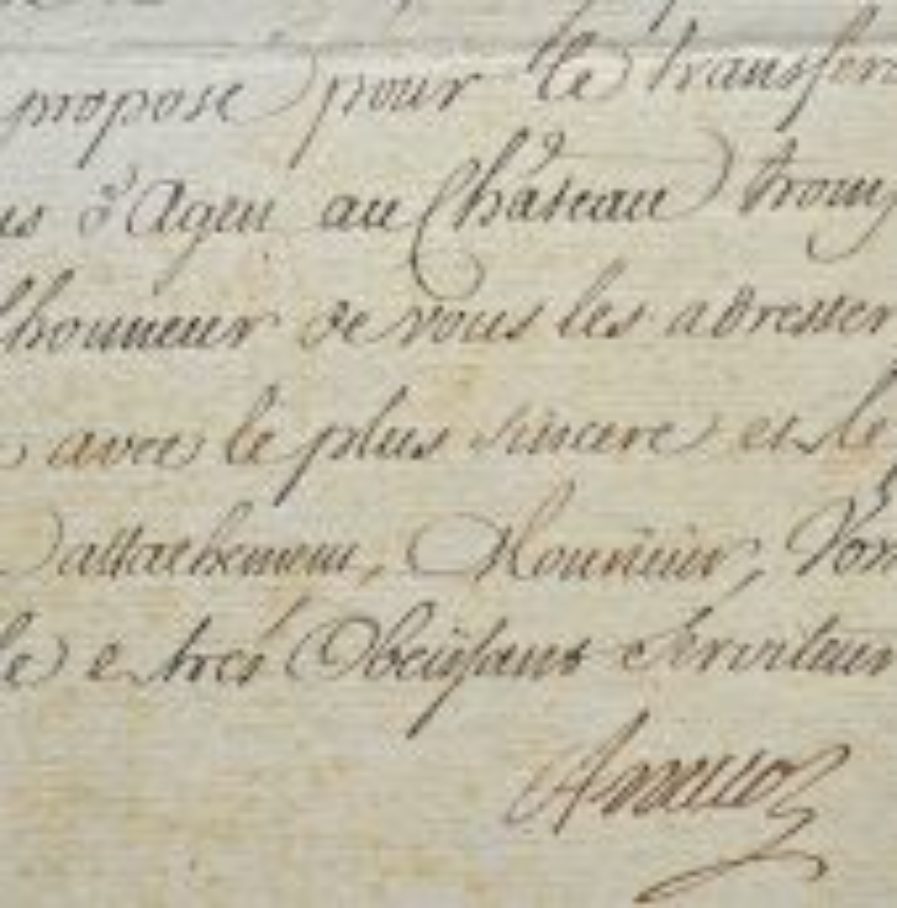 propose pour le transfere
us d'Agen au Château tromp
l'honneur de vous les adresser
avec le plus sincere et le
d'attachement, Monsieur, Votr
le e tres Obeissant Serviteur
Amelot